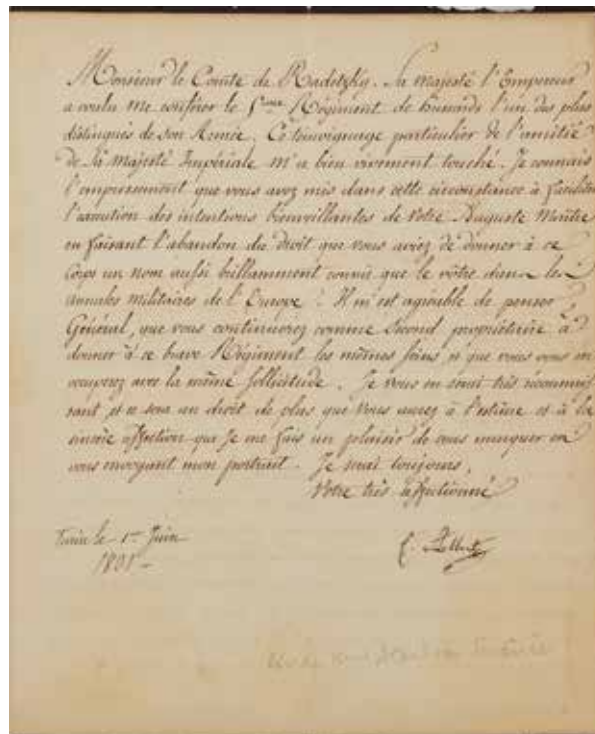 Monsieur le Comte de Radetzky. Sa majesté l'Empereur
a voulu me conférer le 5eme Régiment de husards l'un des plus
distingués de son Armée. Ce témoignage particulier de l'amitié
de Sa Majesté Impériale m'a bien vivement touché. Je connais
l'empressement que vous avez mis dans cette circonstance à faciliter
l'exécution des intentions bienveillantes de Votre Auguste Maître
en faisant l'abandon du droit que vous aviez de donner à ce
Corps un nom aussi brillamment connu que le vôtre dans les
annales militaires de l'Europe. Il m'est agréable de penser
Général, que vous continuerez comme Second propriétaire à
donner à ce brave Régiment les mêmes soins, et que vous vous en
occuperez avec la même sollicitude. Je vous en serai très reconnais
sant, et ce sera un droit de plus que Vous aurez à l'estime et à la
sincère affection que Je me fais un plaisir de vous marquer en
vous envoyant mon portrait. Je suis toujours,
Votre très affectionné
Turin le 1er Juin
C. Albert